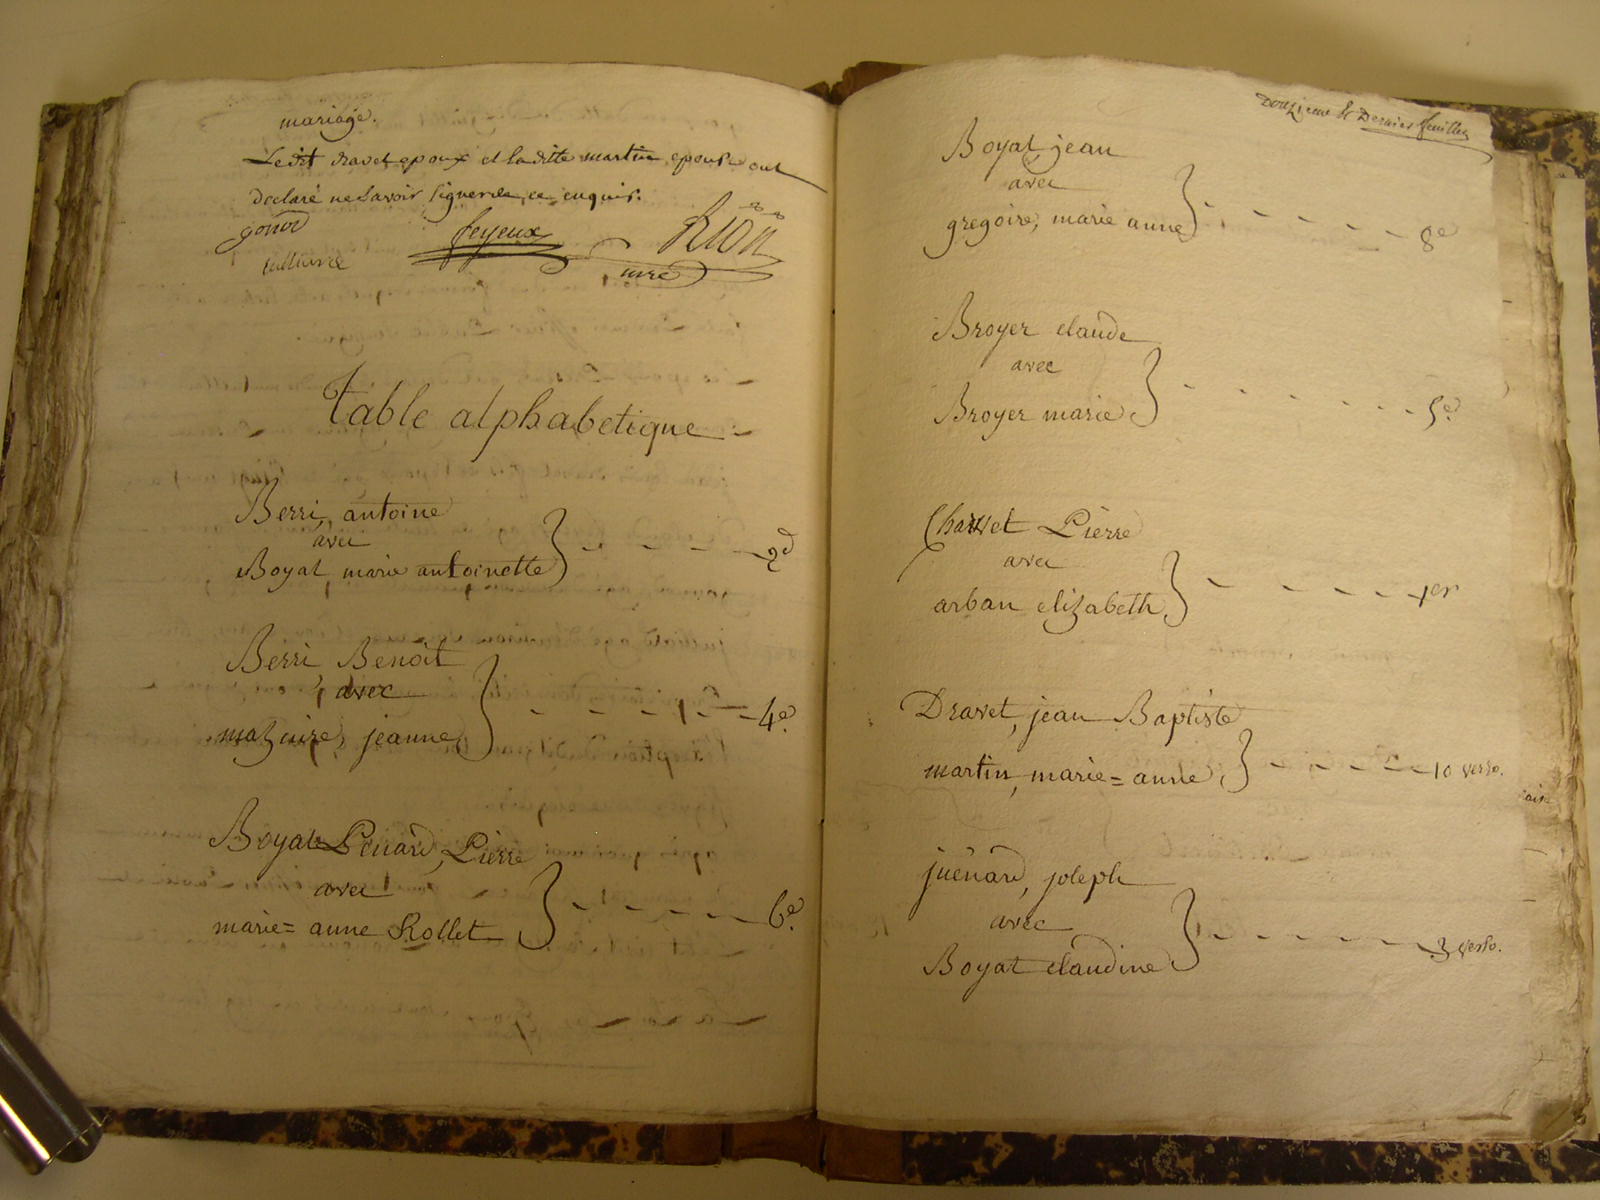 mariage.
Le dit dravet epoux et la ditte martin epouse ont
declaré ne savoir signer de ce enquis.
gonod
feyeux
Rion
mre
Table alphabetique
Berri, antoine
avec
Boyat, marie antoinette 2d
Berri Benoit
avec
mazuire, jeanne 4e.
Boyat Penard, Pierre
avec
marie=anne Rollet 6e.
Douzieme & Dernier feuillet
Boyat, jean
avec
gregoire, marie anne 8e
Broyer claude
avec
Broyer marie 5e.
Charvet Pierre
avec
arban elizabeth 1er
Dravet, jean Baptiste
martin, marie=anne 10 verso.
juenard, joseph
avec
Boyat claudine 3 verso.